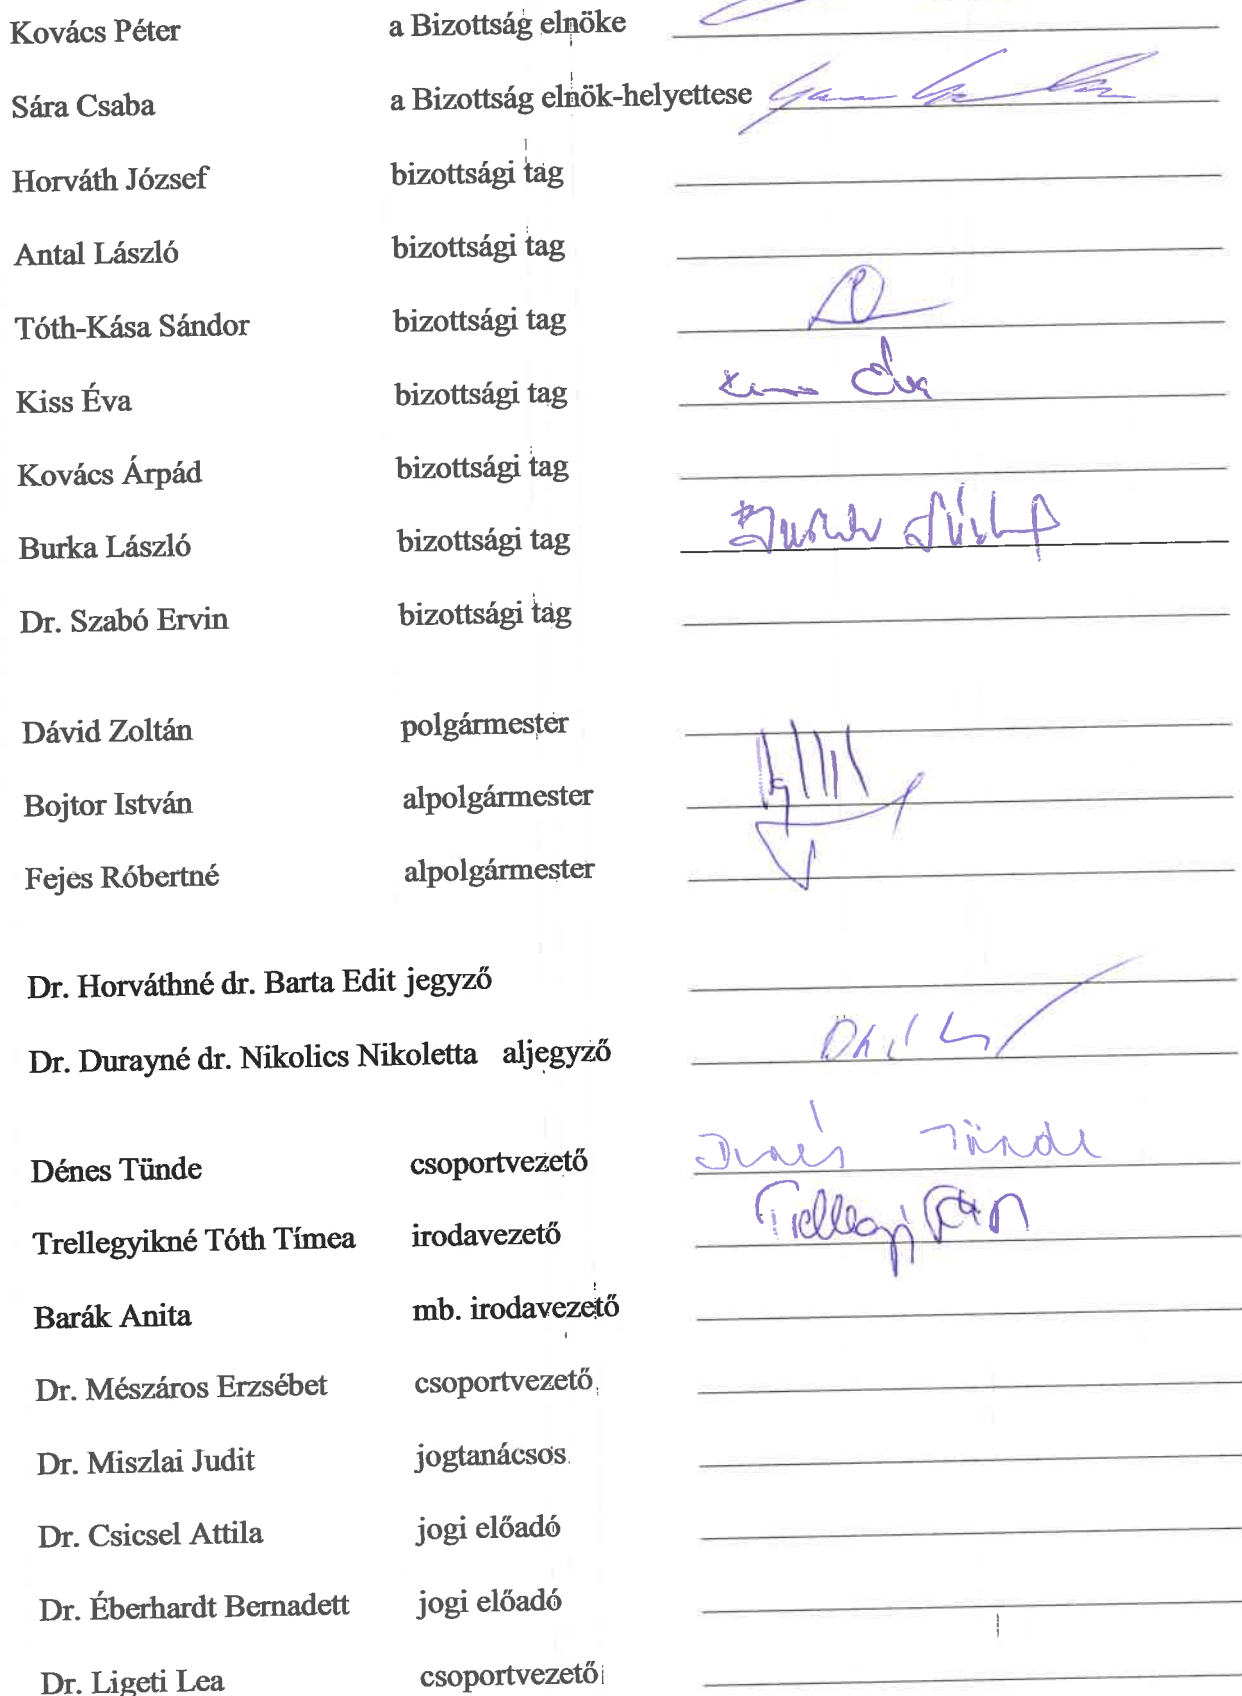 Kovács Péter a Bizottság elnöke
Sára Csaba a Bizottság elnök-helyettese
Horváth József bizottsági tag
Antal László bizottsági tag
Tóth-Kása Sándor bizottsági tag
Kiss Éva bizottsági tag Kiss Éva
Kovács Árpád bizottsági tag
Burka László bizottsági tag Burka László
Dr. Szabó Ervin bizottsági tag
Dávid Zoltán polgármester
Bojtor István alpolgármester
Fejes Róbertné alpolgármester
Dr. Horváthné dr. Barta Edit jegyző
Dr. Durayné dr. Nikolics Nikoletta aljegyző
Dénes Tünde csoportvezető Dénes Tünde
Trellegyikné Tóth Tímea irodavezető
Barák Anita mb. irodavezető
Dr. Mészáros Erzsébet csoportvezető
Dr. Miszlai Judit jogtanácsos
Dr. Csicsel Attila jogi előadó
Dr. Éberhardt Bernadett jogi előadó
Dr. Ligeti Lea csoportvezető